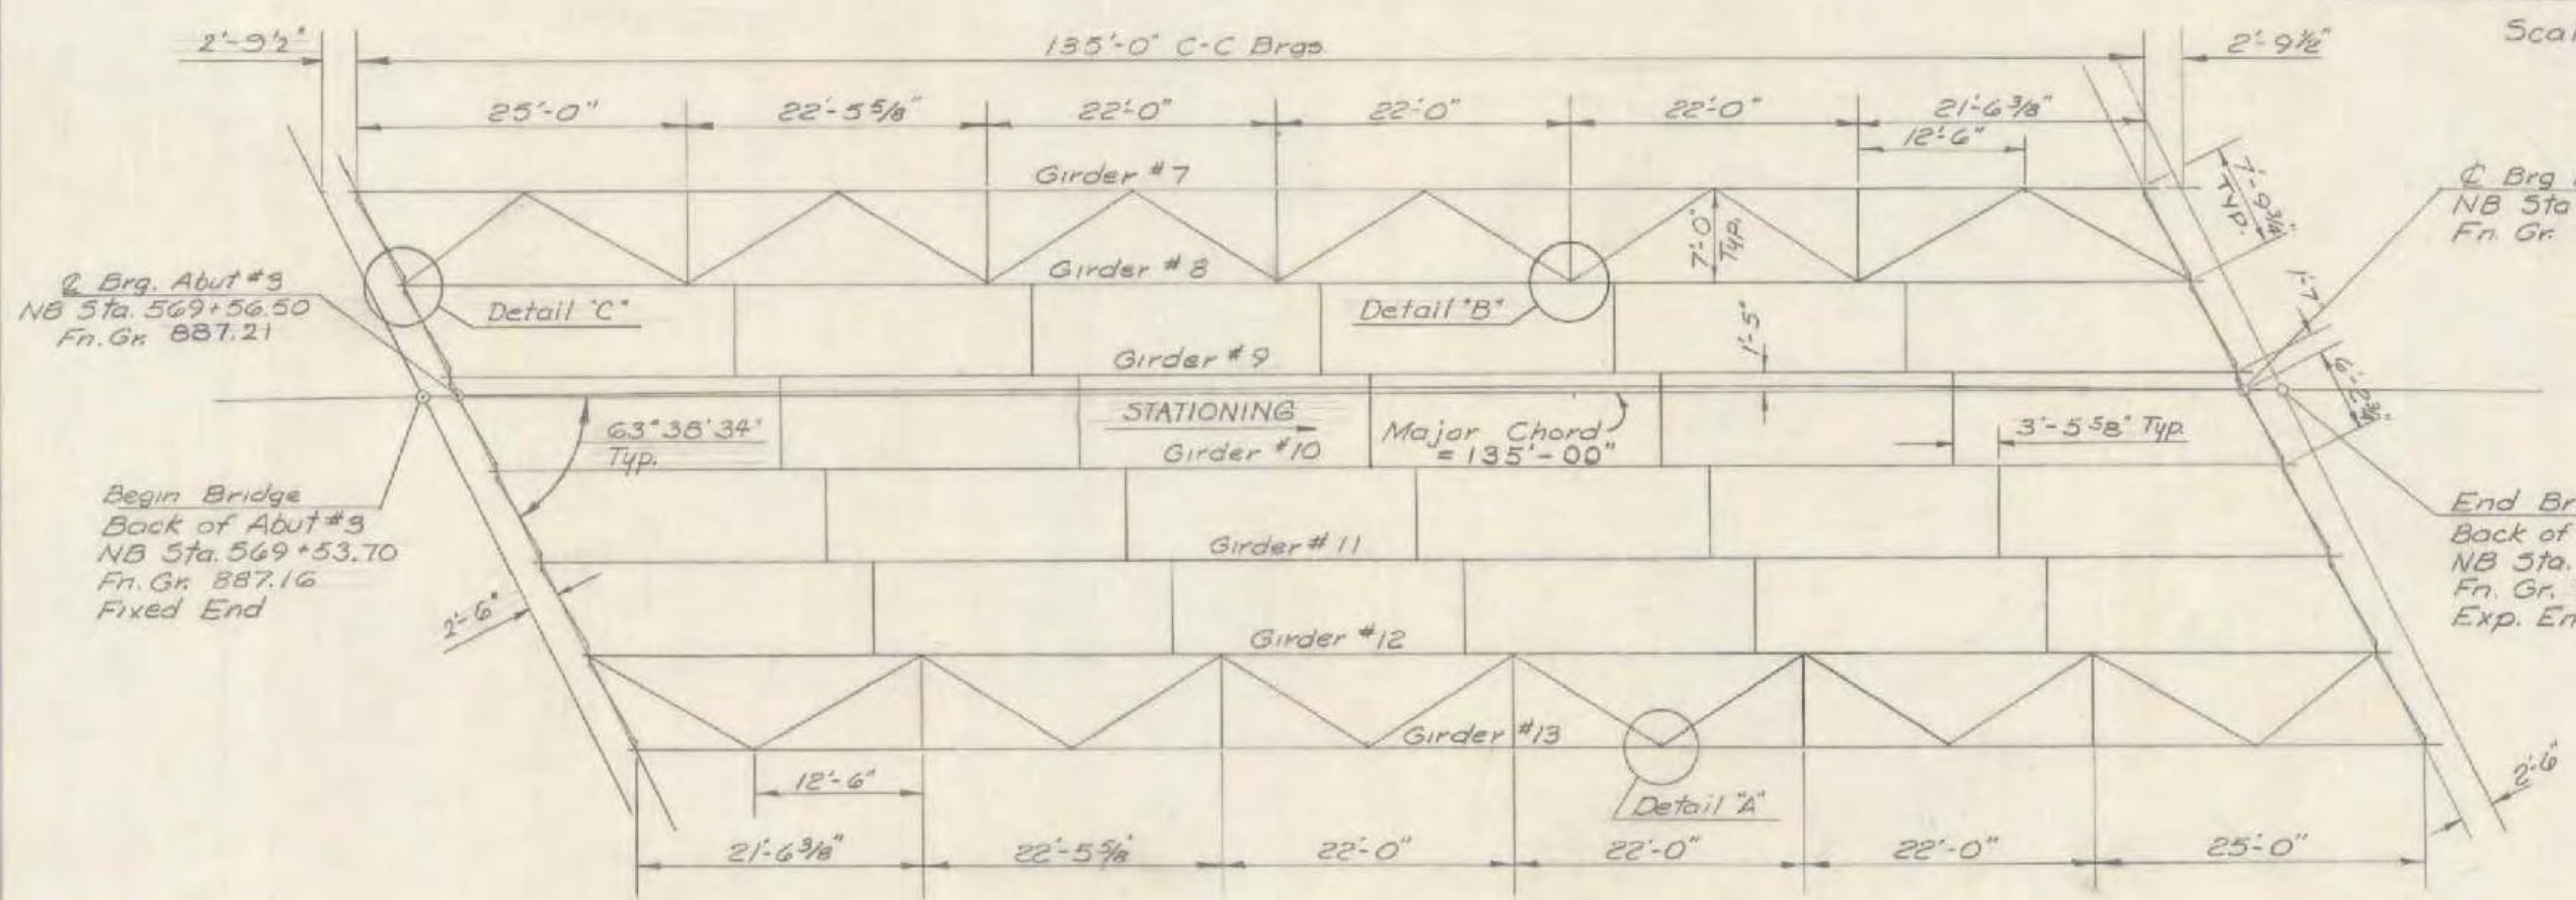 Scal
2'-9½"
135'-0" C-C Brgs.
2'-9½"
25'-0"
22'-5 5/8"
22'-0"
22'-0"
22'-0"
21'-6 3/8"
12'-6"
Girder #7
7'-9 3/4"
Typ.
℄ Brg
NB Sta
Fn. Gr.
7'-0"
Typ.
Girder #8
℄ Brg. Abut #3
NB Sta. 569+56.50
Fn. Gr. 887.21
Detail "C"
Detail "B"
1'-7"
1'-5"
Girder #9
6'-2 3/4"
63°38'34"
Typ.
STATIONING
Girder #10
Major Chord
= 135'-00"
3'-5 5/8" Typ.
Begin Bridge
Back of Abut #3
NB Sta. 569+53.70
Fn. Gr. 887.16
Fixed End
End Br
Back of
NB Sta.
Fn. Gr.
Exp. En
Girder #11
2'-6"
Girder #12
Girder #13
12'-6"
Detail "A"
2'-6"
21'-6 3/8"
22'-5 5/8"
22'-0"
22'-0"
22'-0"
25'-0"